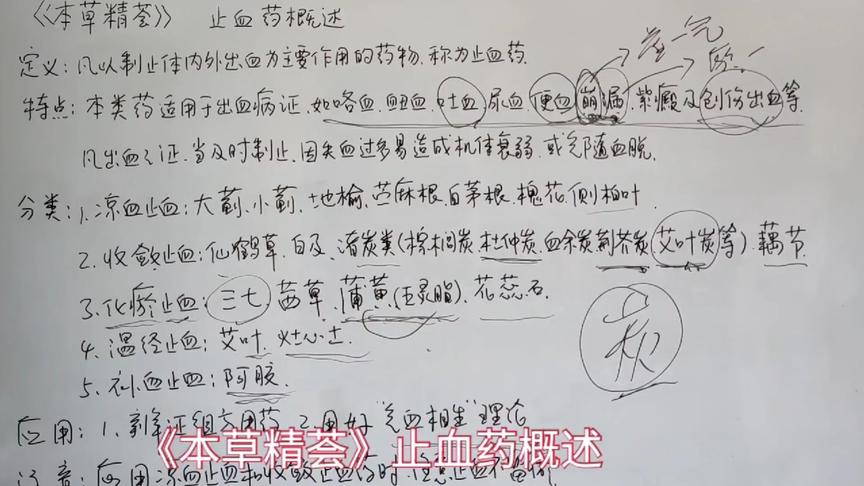 《本草精荟》 止血药概述
定义：凡以制止体内外出血为主要作用的药物、称为止血药.
特点：本类药适用于出血病证、如咯血、衄血、吐血、尿血、便血、崩漏、紫癜及创伤出血等.
凡出血之证、当及时制止、因失血过多易造成机体衰弱、或气随血脱.
分类：1.凉血止血：大蓟、小蓟、地榆、苎麻根、白茅根、槐花、侧柏叶.
2.收敛止血：仙鹤草、白及、诸炭类（棕榈炭、杜仲炭、血余炭、荆芥炭、艾叶炭等）、藕节.
3.化瘀止血：三七、茜草、蒲黄(五灵脂)、花蕊石.
4.温经止血：艾叶、灶心土.
5.补血止血：阿胶.
应用：1、辨证组方用药 2.用好“气血相生”理论
《本草精荟》止血药概述
注意：应用凉血止血和收敛止血药时、注意止血不留瘀